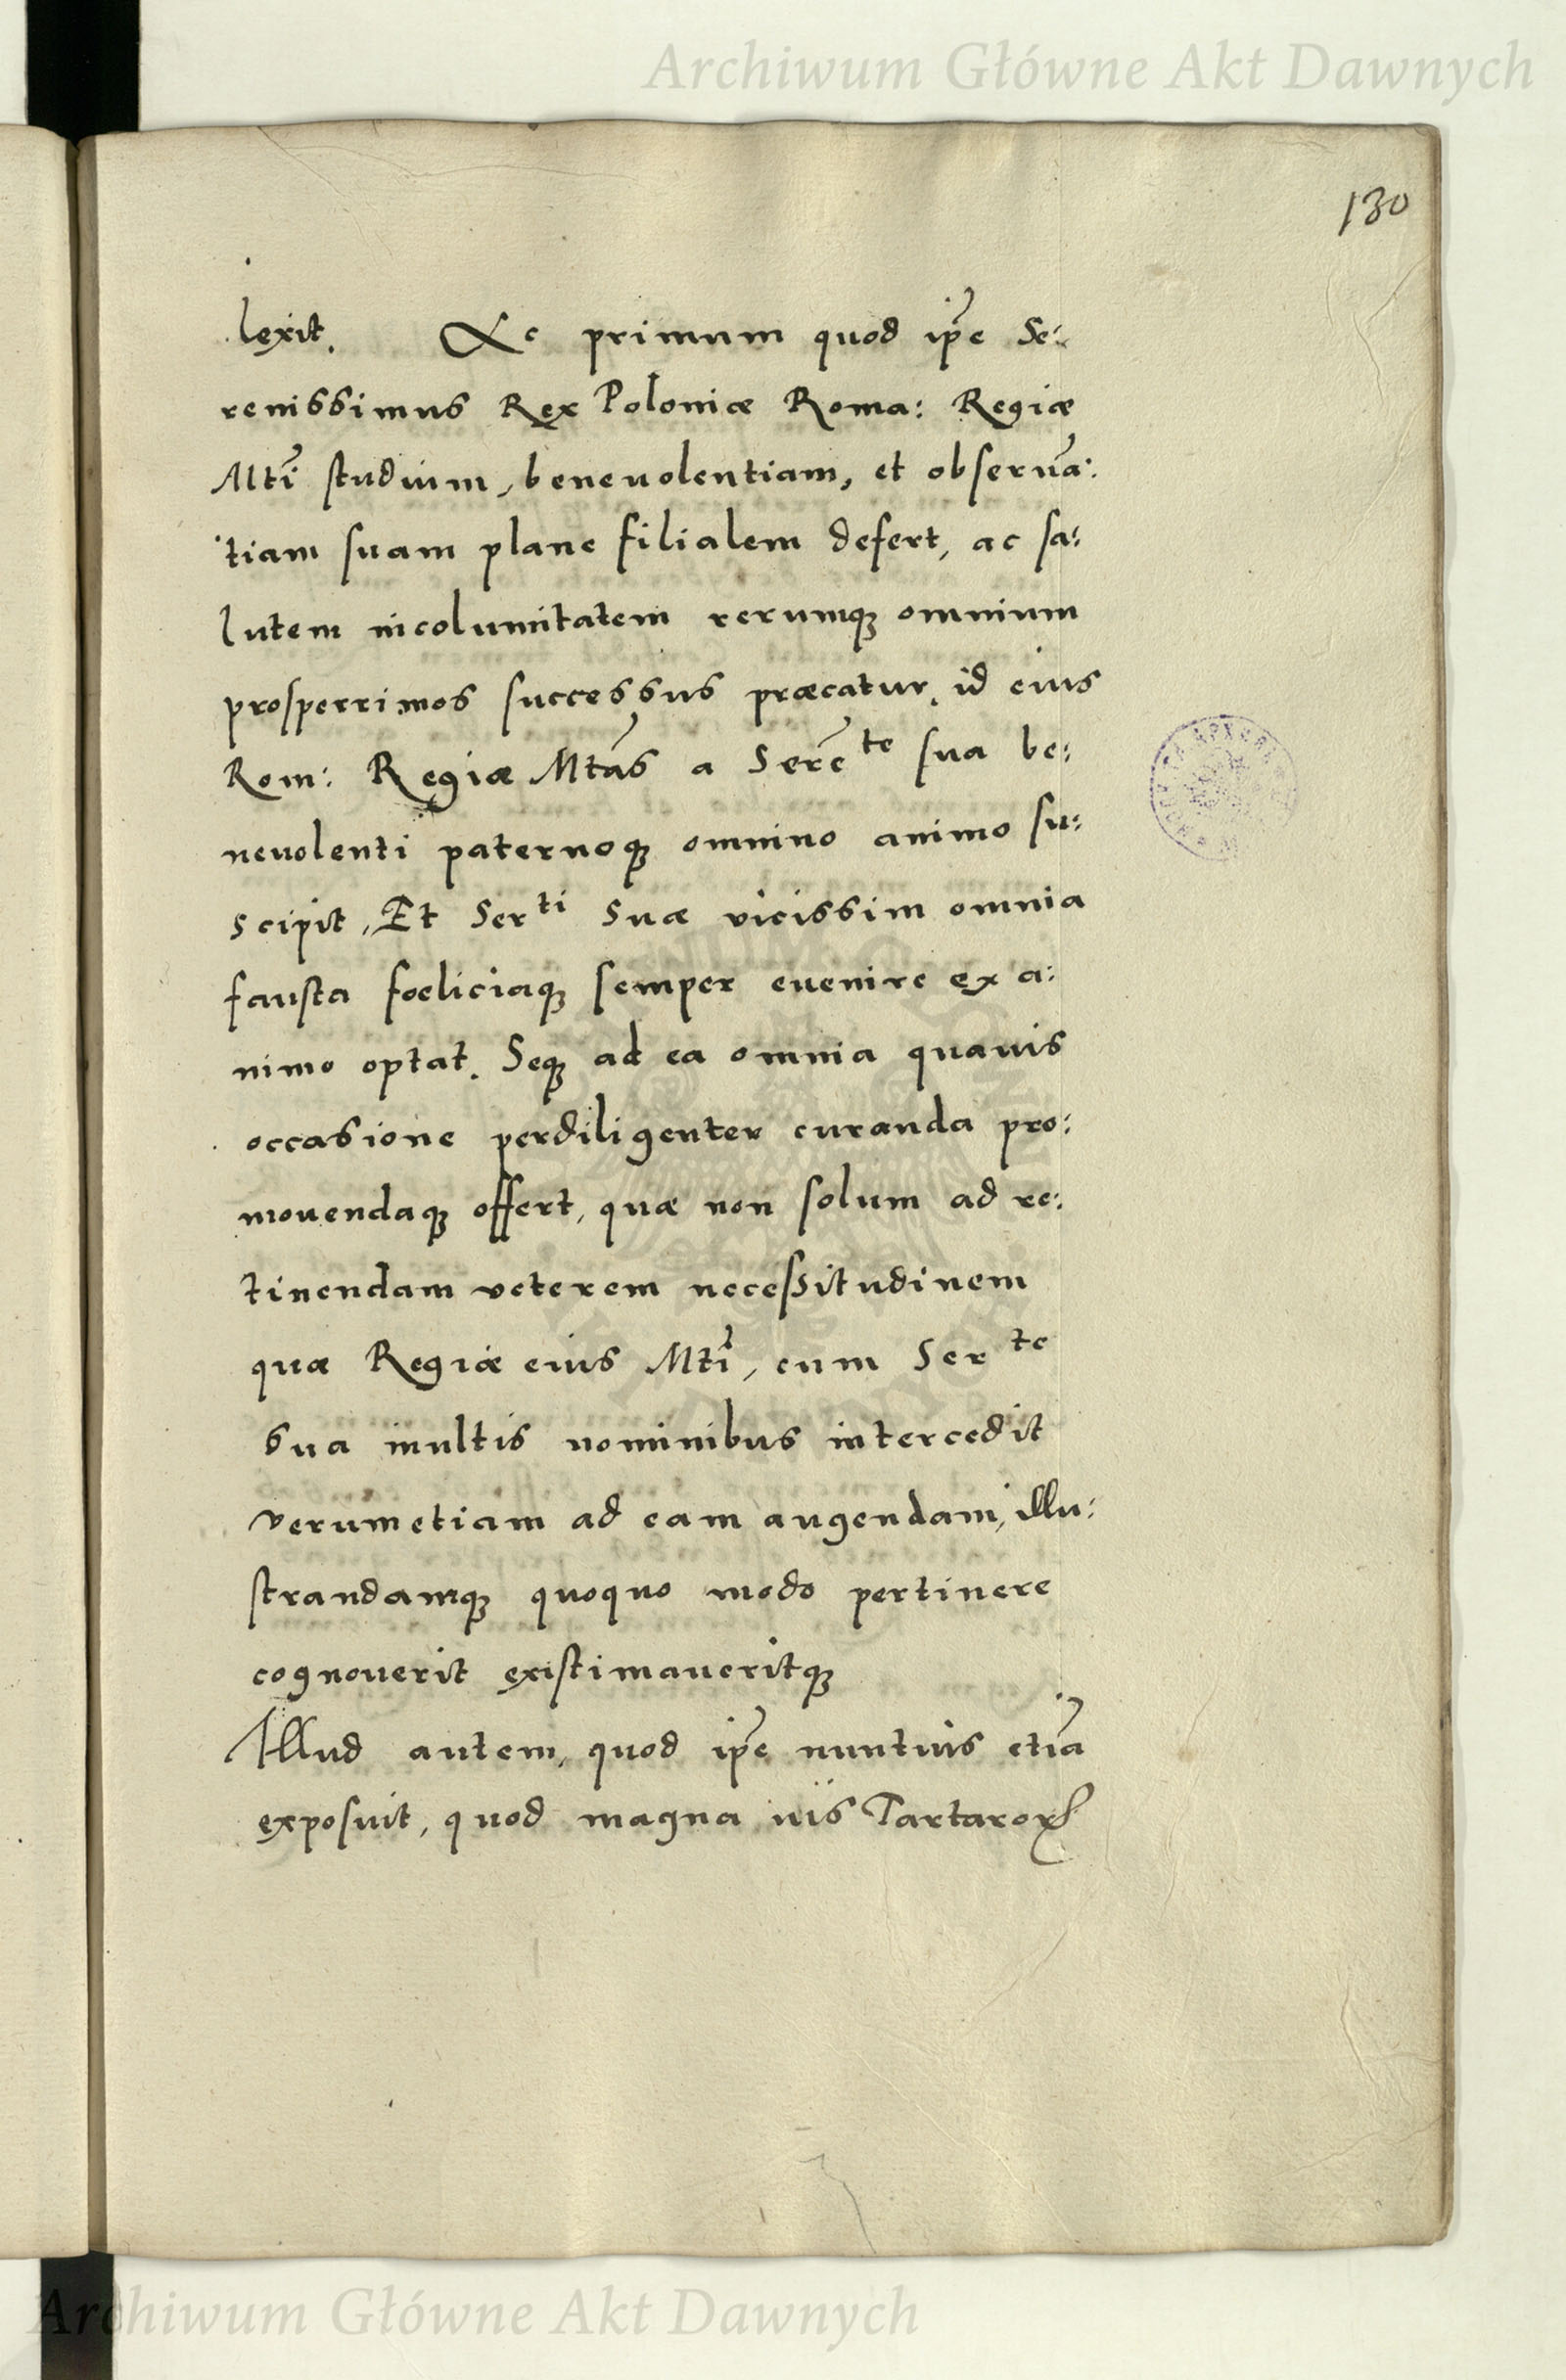 Archiwum Główne Akt Dawnych
130
lexit. Ac primum quod ip̃e Se:
renissimus Rex Poloniæ Roma: Regiæ
Mtĩ studium, beneuolentiam, et obseruã:
tiam suam plane filialem defert, ac sa:
lutem incolumitatem rerumq; omnium
prosperrimos successus præcatur, id eius
Rom: Regiæ Mtãs a Serẽte sua be:
neuolenti paternoq; omnino animo su:
scipit, Et Serti Suæ vicissim omnia
fausta foeliciaq; semper euenire ex a:
nimo optat. Seq; ad ea omnia quauis
occasione perdiligenter curanda pro:
mouendaq; offert, quæ non solum ad re:
tinendam veterem necessitudinem
quæ Regiæ eius Mtĩ, cum Serte
sua multis nominibus intercedit
verumetiam ad eam augendam, illu:
strandamq; quoquo modo pertinere
cognouerit existimaueritq;
Illud autem, quod ip̃e nuntius etiã
exposuit, quod magna uis Tartaroꝝ
Archiwum Główne Akt Dawnych